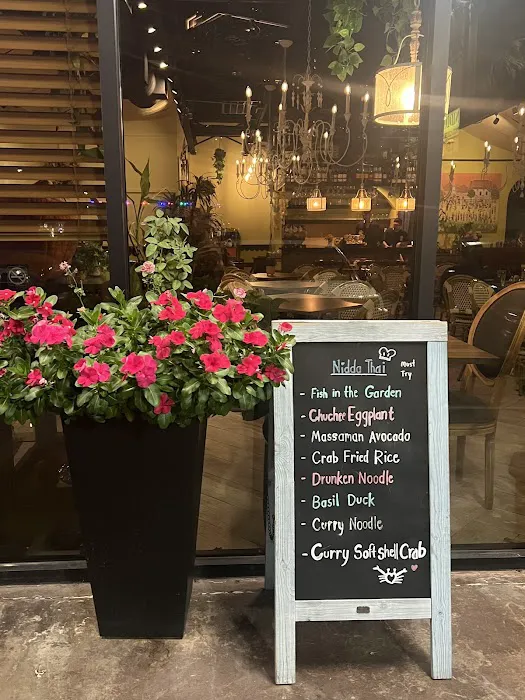 Nidda Thai
Must
Try
- Fish in the Garden
- Chuchee Eggplant
- Massaman Avocado
- Crab Fried Rice
- Drunken Noodle
- Basil Duck
- Curry Noodle
- Curry Soft shell Crab